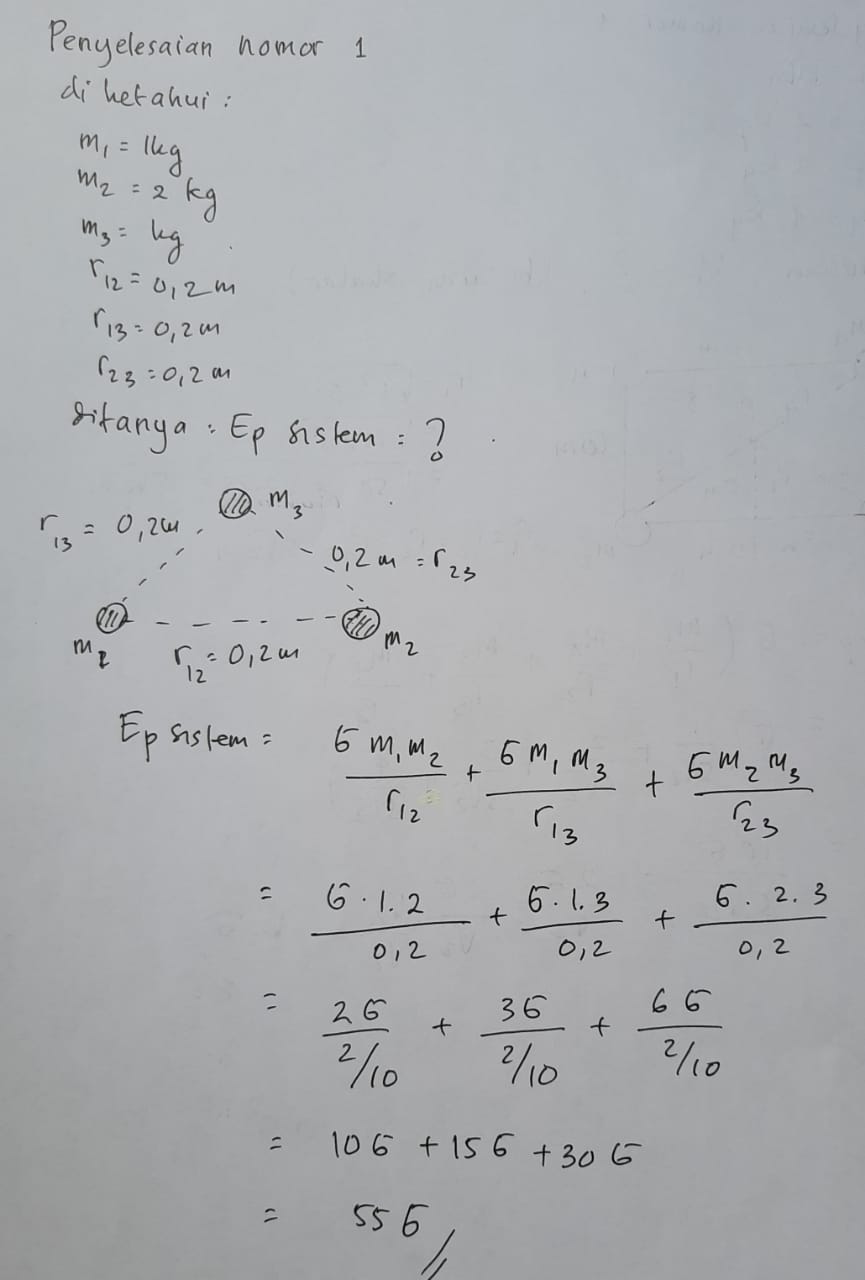 Penyelesaian nomor 1
diketahui :
m₁ = 1kg
m₂ = 2 kg
m₃ = kg
r₁₂ = 0,2 m
r₁₃ = 0,2 m
r₂₃ = 0,2 m
ditanya : Ep sistem = ?
m₃
r₁₃ = 0,2m
0,2 m = r₂₃
m₂
r₁₂ = 0,2 m
Ep sistem = G m₁ m₂ / r₁₂ + G m₁ m₃ / r₁₃ + G m₂ m₃ / r₂₃
= G . 1 . 2 / 0,2 + G . 1 . 3 / 0,2 + G . 2 . 3 / 0,2
= 2G / 2/10 + 3G / 2/10 + 6G / 2/10
= 10G + 15G + 30G
= 55G //